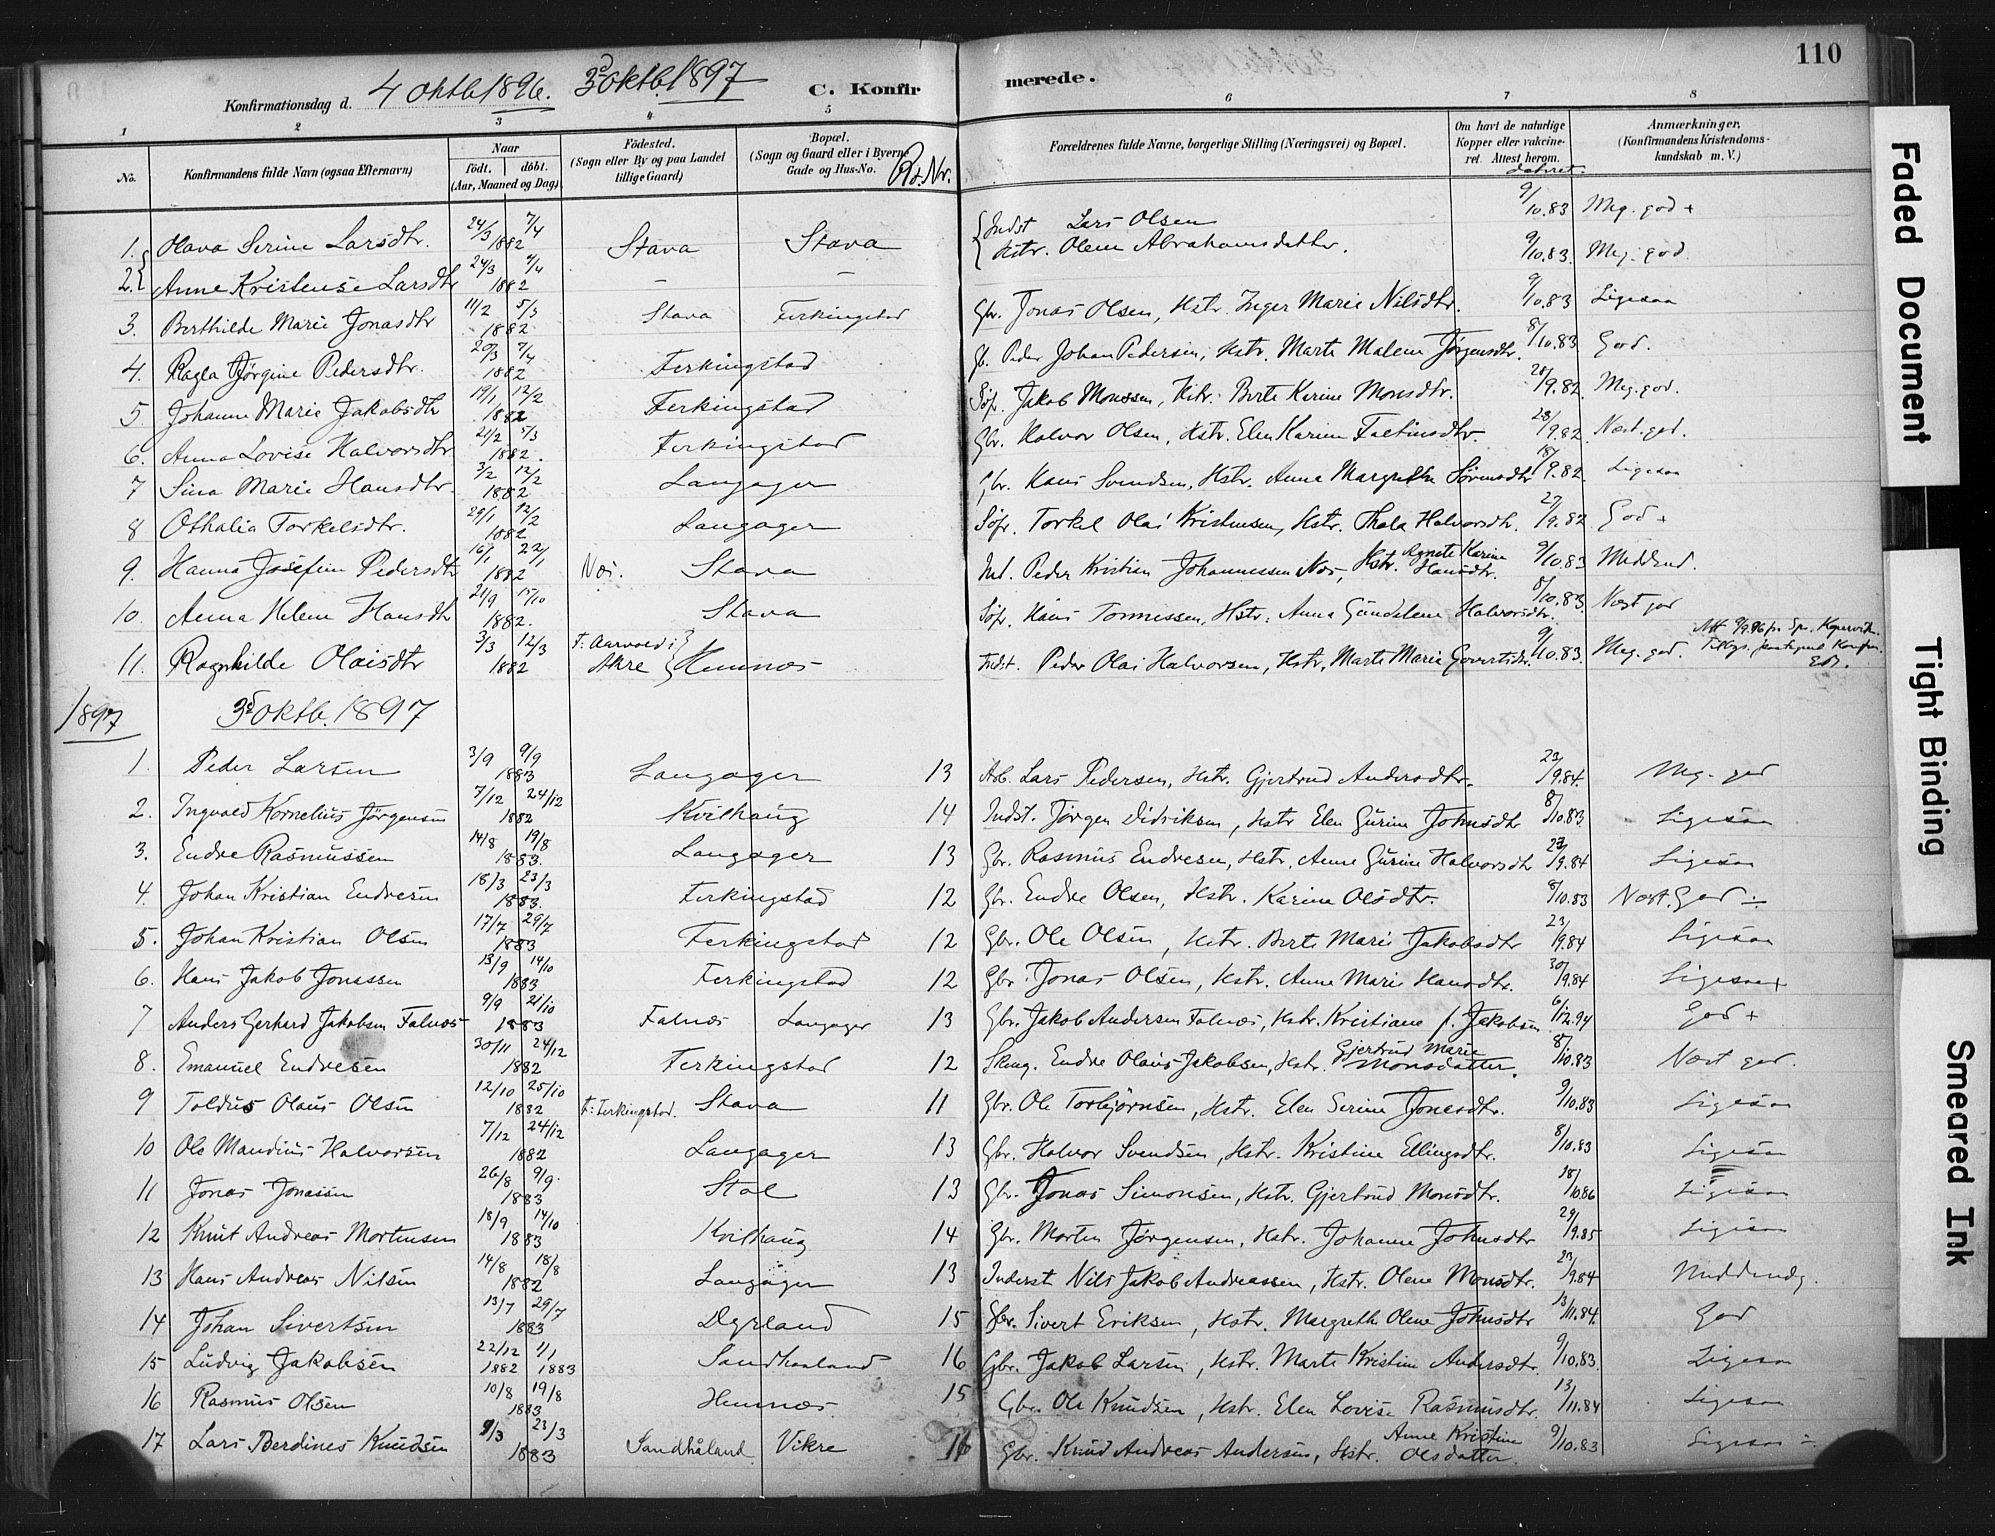 110
Konfirmationsdag d. 4 Oktb 1896. 3d Oktb. 1897 C. Konfirmerede.
1 2 3 4 5 6 7 8
No. Konfirmandens fulde Navn (ogsaa Efternavn) Naar født. døbt. (Aar, Maaned og Dag) Fødested. (Sogn eller By og paa Landet tillige Gaard) Bopæl. (Sogn og Gaard eller i Byerne Gade og Hus-No. Ro.Nr. Forældrenes fulde Navne, borgerlige Stilling (Næringsvei) og Bopæl. Om havt de naturlige Kopper eller vakcineret. Attest herom. dateret. Anmærkninger. (Konfirmandens Kristendomskundskab m. V.)
1. Olava Serine Larsdtr. 24/3 7/4 1882 Stava Stava { Indst Lars Olsen Hstr. Olene Abrahamsdatter. 9/10.83 Meg. god +
2. Anne Kristense Larsdtr 24/3 7/4 1882 – – 9/10.83. Meg. god.
3. Berthilde Marie Jonasdtr 11/2 5/3 1882 Stava Ferkingstad Gbr. Jonas Olsen, Hstr. Inger Marie Nilsdtr. 9/10.83 Ligesaa
4. Ragla Jørgine Pedersdtr. 20/3 7/4 1882 Ferkingstad Gb. Peder Johan Pedersen, Hstr. Marte Malene Jørgensdtr. 8/10.83 God.
5 Johanne Marie Jakobsdtr 19/1 12/2 1882 Ferkingstad Søf. Jakob Monssen, Hstr. Berte Karine Monsdtr. 28/9.82. Meg. god.
6. Anna Lovise Halvorsdtr 21/2 5/3 1882. Ferkingstad Gbr. Halvor Olsen, Hstr. Elen Karine Faltinsdtr. 28/9.82 Næst. god.
7 Sina Marie Hansdtr. 3/2 12/2 1882 Langager Gbr. Hans Svendsen, Hstr. Anne Margrethe Sørensdtr 18/9.82. Ligesaa
8 Othalia Torkelsdtr. 29/1 12/2 1882 Langager Søfr. Torkel Olai Kristensen, Hstr. Thala Halvorsdtr. 27/9.82 God +
9. Hanna Josefine Pedersdtr 16/1 22/1 1882 Næs. Stava Ind. Peder Kristian Johannessen Næs, Hstr. Agnete Karine Hansdtr. 9/10.83 Middend.
10. Anna Helene Hansdtr 21/9 15/10 1882. Stava Søf. Hans Tonnessen, Hstr. Anna Gundelene Halvorsdtr. 8/10.83. Næst god
11. Ragnhilde Olaisdtr 3/3 12/3 1882 F: Aarvold i Akre } Hemnæs Indst. Peder Olai Halvorsen, Hstr. Marte Marie Govertsdtr. 9/10.83. Meg. god.
1897 3d Oktb. 1897
1. Peder Larsen 3/9 9/9 1883 Langager 13 Arb. Lars Pedersen, Hstr. Gjertrud Andersdtr. 23/9.84. Meg. god
2. Ingvald Kornelius Jørgensen 7/12 24/12 1882 Kvilhaug 14 Indst. Jørgen Didriksen, Hstr Elen Gurine Johnsdtr 8/10.83 Ligesaa
3. Endre Rasmussen 14/8 19/8 1883. Langager 13 Gbr. Rasmus Endresen, Hstr. Anne Gurine Halvorsdtr 23/9.84 Ligesaa
4. Johan Kristian Endresen 18/3 23/3 1883. Ferkingstad 12 Gbr. Endre Olsen, Hstr. Karine Olsdtr. 8/10.83 Næst. God ÷
5. Johan Kristian Olsen 17/7 29/7 1883 Ferkingstad 12 Gbr. Ole Olsen, Hstr. Berte Marie Jakobsdtr 23/9.84 Ligesaa
6. Hans Jakob Jonassen 13/9 14/10 1883 Ferkingstad 12 Gbr. Jonas Olsen, Hstr. Anne Marie Hansdtr. 30/9.84 Ligesaa +
7 Anders Gerhard Jakobsen Falnæs 9/9 21/10 1883 Falnæs Langager 13 Gbr. Jakob Andersen Falnæs, Hstr. Kristiane f. Jakobsen 6/12.94 God +
8. Emanuel Endresen 30/11 24/12 1882 Ferkingstad 12 Skmg. Endre Olaus Jakobsen, Hstr. Gjertrud Marie Monsdatter. 8/10.83 Næst god.
9 Toldius Olaus Olsen 12/10 25/10 1882 F: Ferkingstad. Stava 11 Gbr. Ole Torbjørnsen, Hstr. Elen Serine Jonasdtr. 9/10.83 Ligesaa
10 Ole Mandius Halvorsen 7/12 24/12 1882 Langager 13 Gbr. Halvor Svendsen, Hstr. Kristine Ellingsdtr. 8/10.83 Ligesaa
11 Jonas Jonassen 26/8 9/9. 1883 Stol 13 Gbr. Jonas Simonsen, Hstr. Gjertrud Monsdtr. 18/10.86 Ligesaa
12 Knut Andreas Mortensen 18/9 14/10 1883 Kvilhaug 14 Gbr. Morten Jørgensen, Hstr. Johanne Johnsdtr 29/9.85 Ligesaa
13 Hans Andreas Nilsen 14/8 18/8 1882 Langager 13 Inderst Nils Jakob Andreassen, Hstr. Olene Monsdtr. 23/9.84 Middendg.
14 Johan Sivertsen 13/7 29/7 1883 Dyrland 15 Gbr. Sivert Eriksen, Hstr. Margrethe Olene Johnsdtr 13/11.84. God
15 Ludvig Jakobsen 22/12 1882 1/1 1883 Sandhaaland 16 Gbr. Jakob Larsen, Hstr. Marte Kristine Andersdtr. 9/10.83. Ligesaa
16 Rasmus Olsen 10/8 19/8 1883 Hemnæs. 15 Gbr. Ole Knudsen, Hstr. Elen Lovise Rasmusdtr. 13/11.84 Ligesaa
17 Lars Berdines Knudsen 9/3 23/3 1883 Sandhåland Vikre 16 Gbr. Knud Andreas Andersen, Hstr. Anne Kristine Olsdatter. 9/10.83 Ligesaa ÷
Faded Document
Tight Binding
Smeared Ink